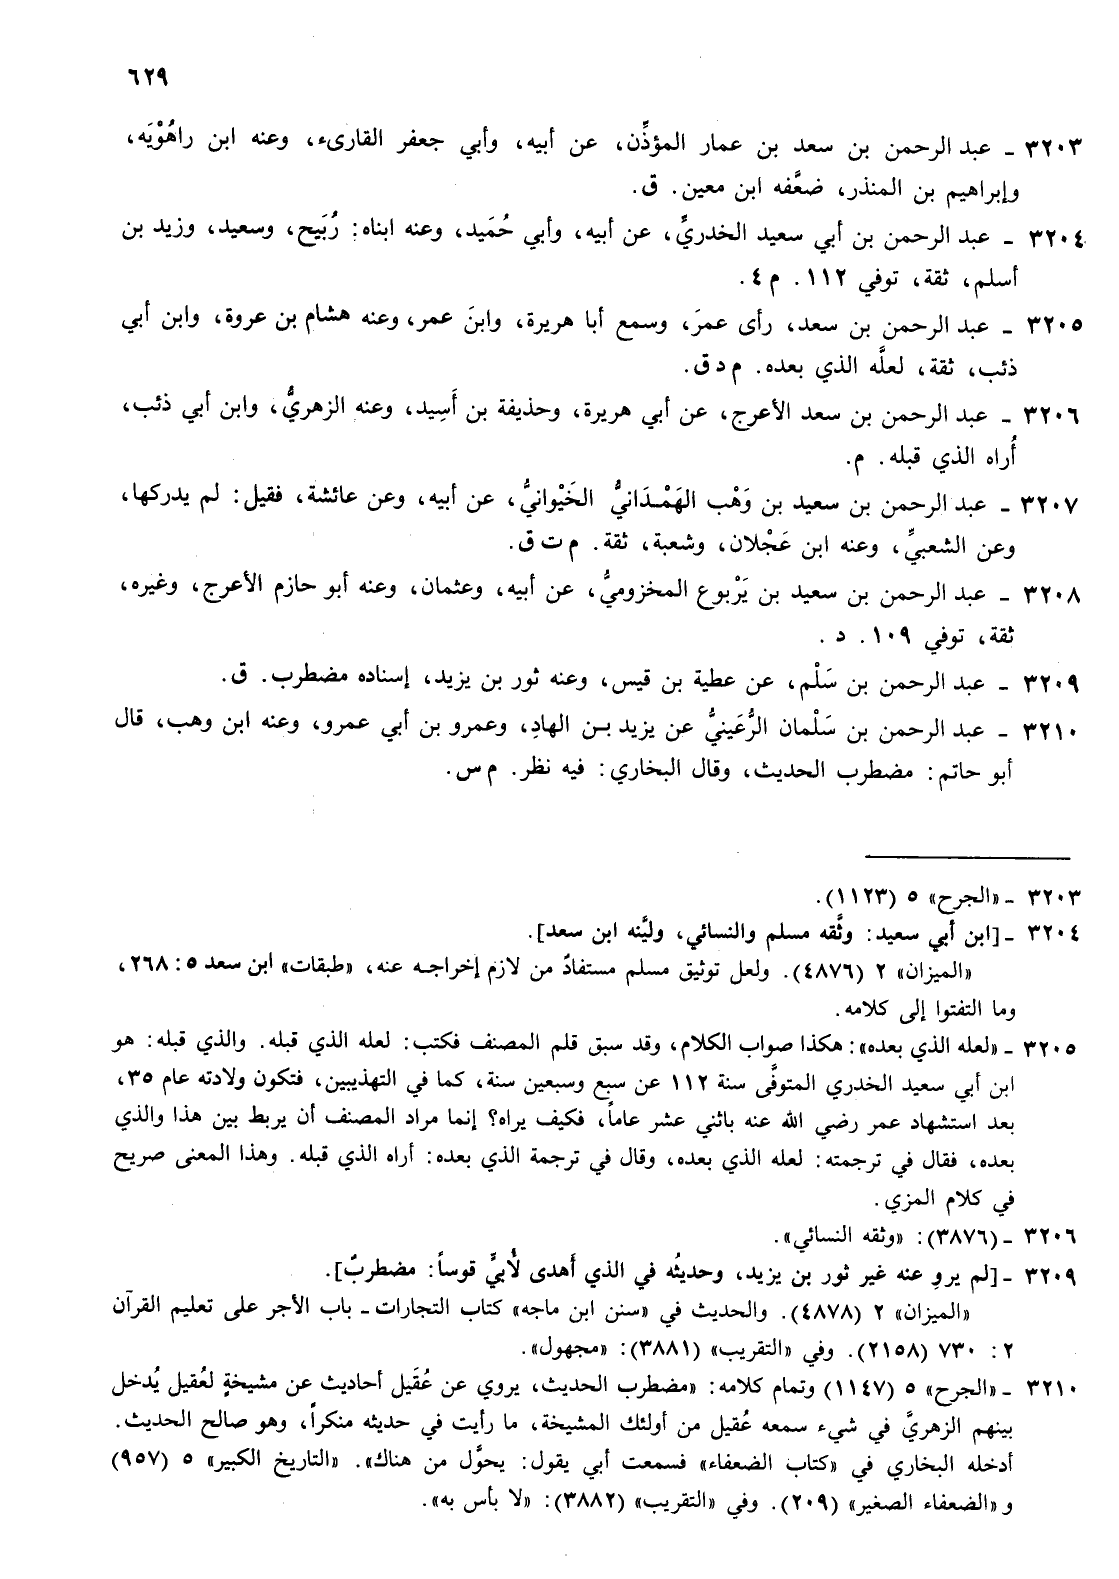 ٦٢٩
٣٢٠٣ ـ عبد الرحمن بن سعد بن عمار المؤذِّن، عن أبيه، وأبي جعفر القارىء، وعنه ابن راهُوْيَه،
وإبراهيم بن المنذر، ضعَّفه ابن معين. ق.
٣٢٠٤ ـ عبد الرحمن بن أبي سعيد الخدريِّ، عن أبيه، وأبي حُمَيد، وعنه ابناه: رُبَيح، وسعيد، وزيد بن
أسلم، ثقة، توفي ١١٢. م ٤.
٣٢٠٥ ـ عبد الرحمن بن سعد، رأى عمرَ، وسمع أبا هريرة، وابنَ عمر، وعنه هشام بن عروة، وابن أبي
ذئب، ثقة، لعلَّه الذي بعده. م د ق.
٣٢٠٦ ـ عبد الرحمن بن سعد الأعرج، عن أبي هريرة، وحذيفة بن أَسِيد، وعنه الزهريُّ، وابن أبي ذئب،
أُراه الذي قبله. م.
٣٢٠٧ ـ عبد الرحمن بن سعيد بن وَهْب الهَمْدَانيُّ الخَيْوانيُّ، عن أبيه، وعن عائشة، فقيل: لم يدركها،
وعن الشعبيِّ، وعنه ابن عَجْلان، وشعبة، ثقة. م ت ق.
٣٢٠٨ ـ عبد الرحمن بن سعيد بن يَرْبوع المخزوميُّ، عن أبيه، وعثمان، وعنه أبو حازم الأعرج، وغيره،
ثقة، توفي ١٠٩. د .
٣٢٠٩ ـ عبد الرحمن بن سَلْم، عن عطية بن قيس، وعنه ثور بن يزيد، إسناده مضطرب. ق.
٣٢١٠ ـ عبد الرحمن بن سَلْمان الرُّعَينيُّ عن يزيد بن الهادِ، وعمرو بن أبي عمرو، وعنه ابن وهب، قال
أبو حاتم: مضطرب الحديث، وقال البخاري: فيه نظر. م س.
٣٢٠٣ ـ «الجرح» ٥ (١١٢٣).
٣٢٠٤ ـ [ابن أبي سعيد: وثَّقه مسلم والنسائي، وليَّنه ابن سعد].
«الميزان» ٢ (٤٨٧٦). ولعل توثيق مسلم مستفادٌ من لازم إخراجه عنه، «طبقات» ابن سعد ٥: ٢٦٨،
وما التفتوا إلى كلامه.
٣٢٠٥ ـ «لعله الذي بعده»: هكذا صواب الكلام، وقد سبق قلم المصنف فكتب: لعله الذي قبله. والذي قبله: هو
ابن أبي سعيد الخدري المتوفَّى سنة ١١٢ عن سبع وسبعين سنة، كما في التهذيبين، فتكون ولادته عام ٣٥،
بعد استشهاد عمر رضي الله عنه باثني عشر عاماً، فكيف يراه؟ إنما مراد المصنف أن يربط بين هذا والذي
بعده، فقال في ترجمته: لعله الذي بعده، وقال في ترجمة الذي بعده: أراه الذي قبله. وهذا المعنى صريح
في كلام المزي.
٣٢٠٦ ـ (٣٨٧٦): «وثقه النسائي».
٣٢٠٩ ـ [لم يروِ عنه غير ثور بن يزيد، وحديثُه في الذي أَهدى لأُبيٍّ قوساً: مضطربٌ].
«الميزان» ٢ (٤٨٧٨). والحديث في «سنن ابن ماجه» كتاب التجارات ـ باب الأجر على تعليم القرآن
٢: ٧٣٠ (٢١٥٨). وفي «التقريب» (٣٨٨١): «مجهول».
٣٢١٠ ـ «الجرح» ٥ (١١٤٧) وتمام كلامه: «مضطرب الحديث، يروي عن عُقَيل أحاديث عن مشيخةٍ لعُقيل يُدخل
بينهم الزهريَّ في شيء سمعه عُقيل من أولئك المشيخة، ما رأيت في حديثه منكراً، وهو صالح الحديث.
أدخله البخاري في «كتاب الضعفاء» فسمعت أبي يقول: يحوَّل من هناك». «التاريخ الكبير» ٥ (٩٥٧)
و «الضعفاء الصغير» (٢٠٩). وفي «التقريب» (٣٨٨٢): «لا بأس به».